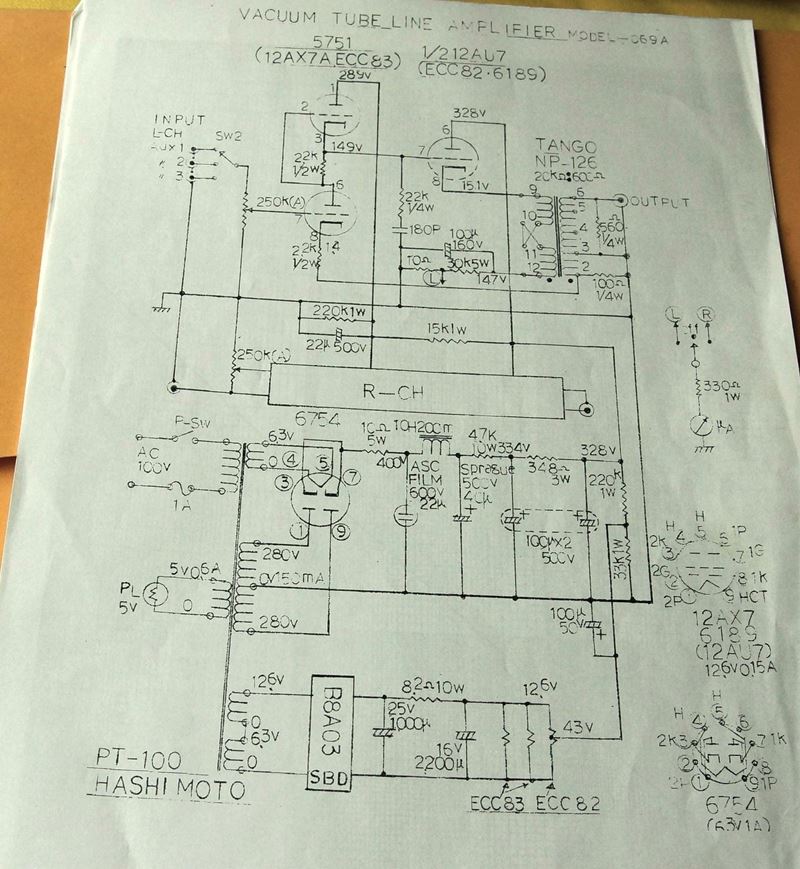 VACUUM TUBE LINE AMPLIFIER MODEL-C69A
5751
(12AX7A, ECC83)
1/2 12AU7
(ECC82·6189)
289V
1
2
3
149V
328V
6
7
8
15.1V
INPUT
L-CH
AUX 1
〃 2
〃 3
SW2
2.2K
1/2W
6
250K(A)
7
8
1.4
2.2K
1/2W
22K
1/4W
180P
100μ
160V
10Ω
30K5W
L
147V
TANGO
NP-126
20KΩ:600Ω
9
10
11
12
6
5
4
3
2
OUTPUT
560Ω
1/4W
100Ω
1/4W
220K1W
22μ500V
15K1W
250K(A)
R-CH
L
R
330Ω
1W
μA
P-SW
AC
100V
1A
6.3V
0
6754
④
⑤
③
⑦
①
⑨
10Ω
5W
400V
10H200m
4.7K
10W
334V
348Ω
3W
328V
ASC
FILM
600V
22μ
Sprague
500V
40μ
100μ×2
500V
220K
1W
33K1W
280V
0/150mA
280V
5V0.6A
0
PL
5V
100μ
50V
H
H
1P
2K
3
4
5
1G
7
2G
2
8
1K
2P
1
9
HCT
12AX7
6189
(12AU7)
12.6V0.15A
12.6V
0
6.3V
0
B8A03
SBD
8.2Ω10W
25V
1000μ
16V
2,200μ
12.6V
43V
ECC83 ECC82
PT-100
HASHIMOTO
H
H
4
5
6
2K
3
7
1K
2
8
1
9
1P
6754
(6.3V1A)